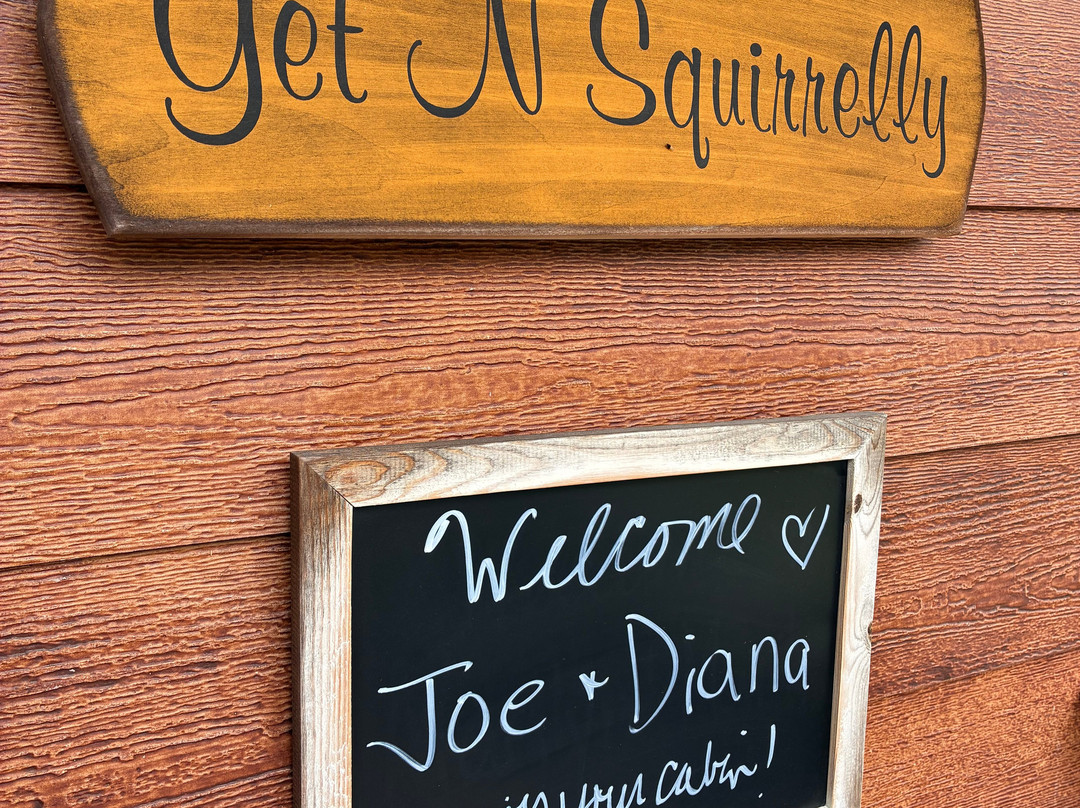 Get N Squirrelly
Welcome ♡
Joe & Diana
in your cabin!